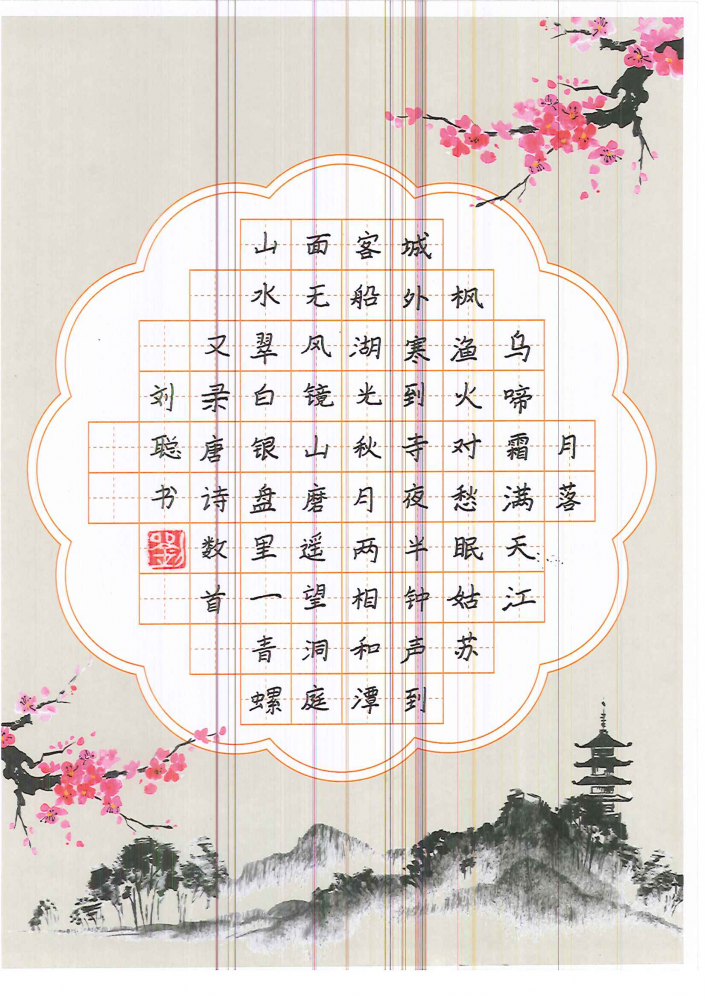 月落
乌啼霜满天江
枫渔火对愁眠姑苏
城外寒到寺夜半钟声到
客船湖光秋月两相和潭
面无风镜山磨遥望洞庭
山水翠白银盘里一青螺
又录唐诗数首
刘聪书